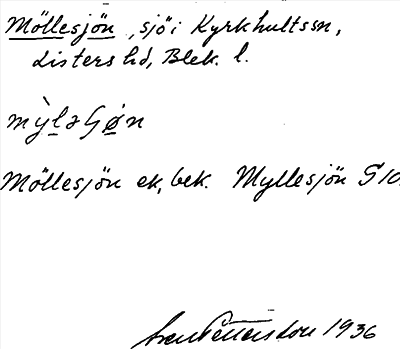 Möllesjön, sjö i Kyrkhultssn,
Listers hd, Blek. l.
Möllesjön ek, bek. Myllesjön G 10.
1936